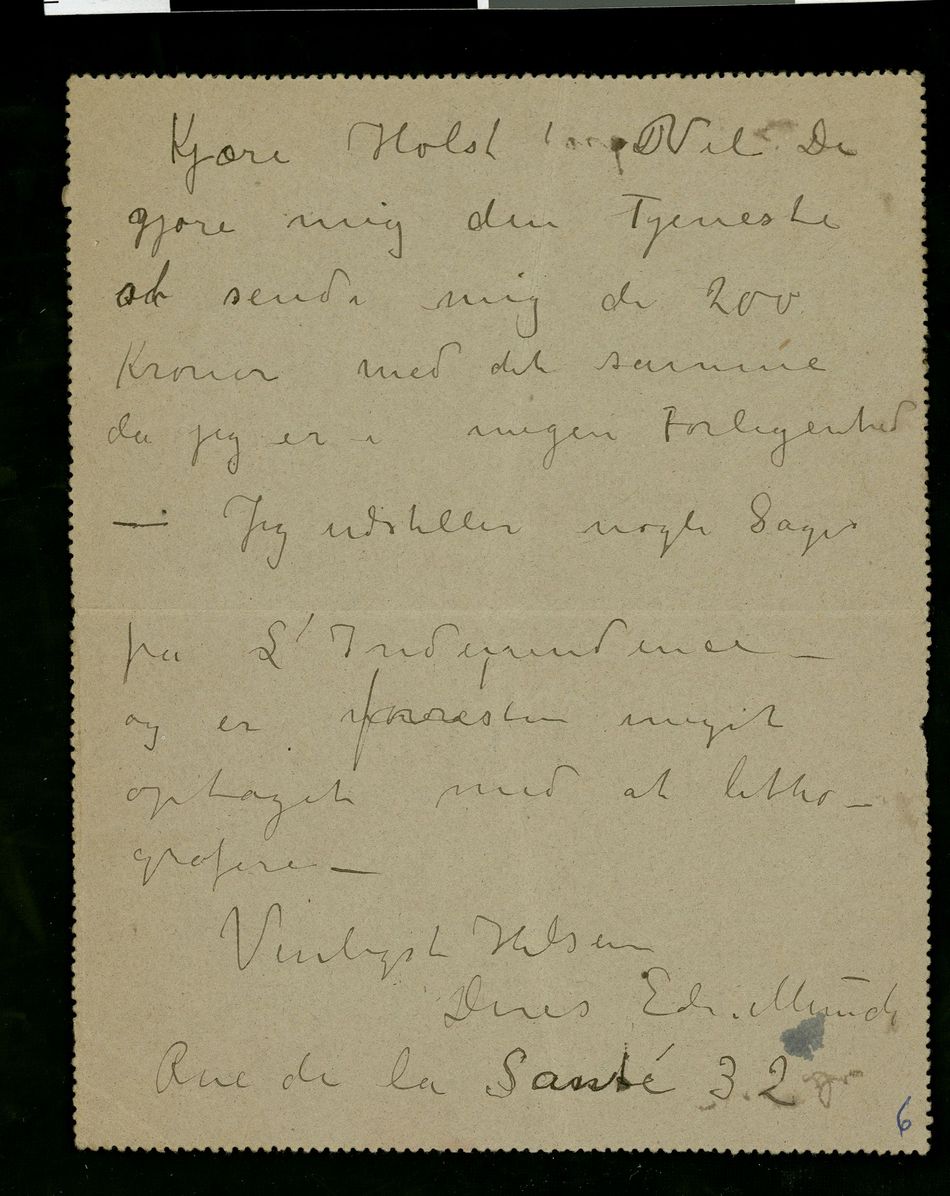 Kjære Holst Vil De
gjøre mig den Tjeneste
at sende mig de 200
Kroner med det samme
da jeg er i megen Forlegenhed
— Jeg udstiller nogle Sager
på L'Independence —
og er forresten meget
optaget med at litho-
grafere —
Venligst Hilsen
Deres Edv. Munch
Rue de la Santé 32
6